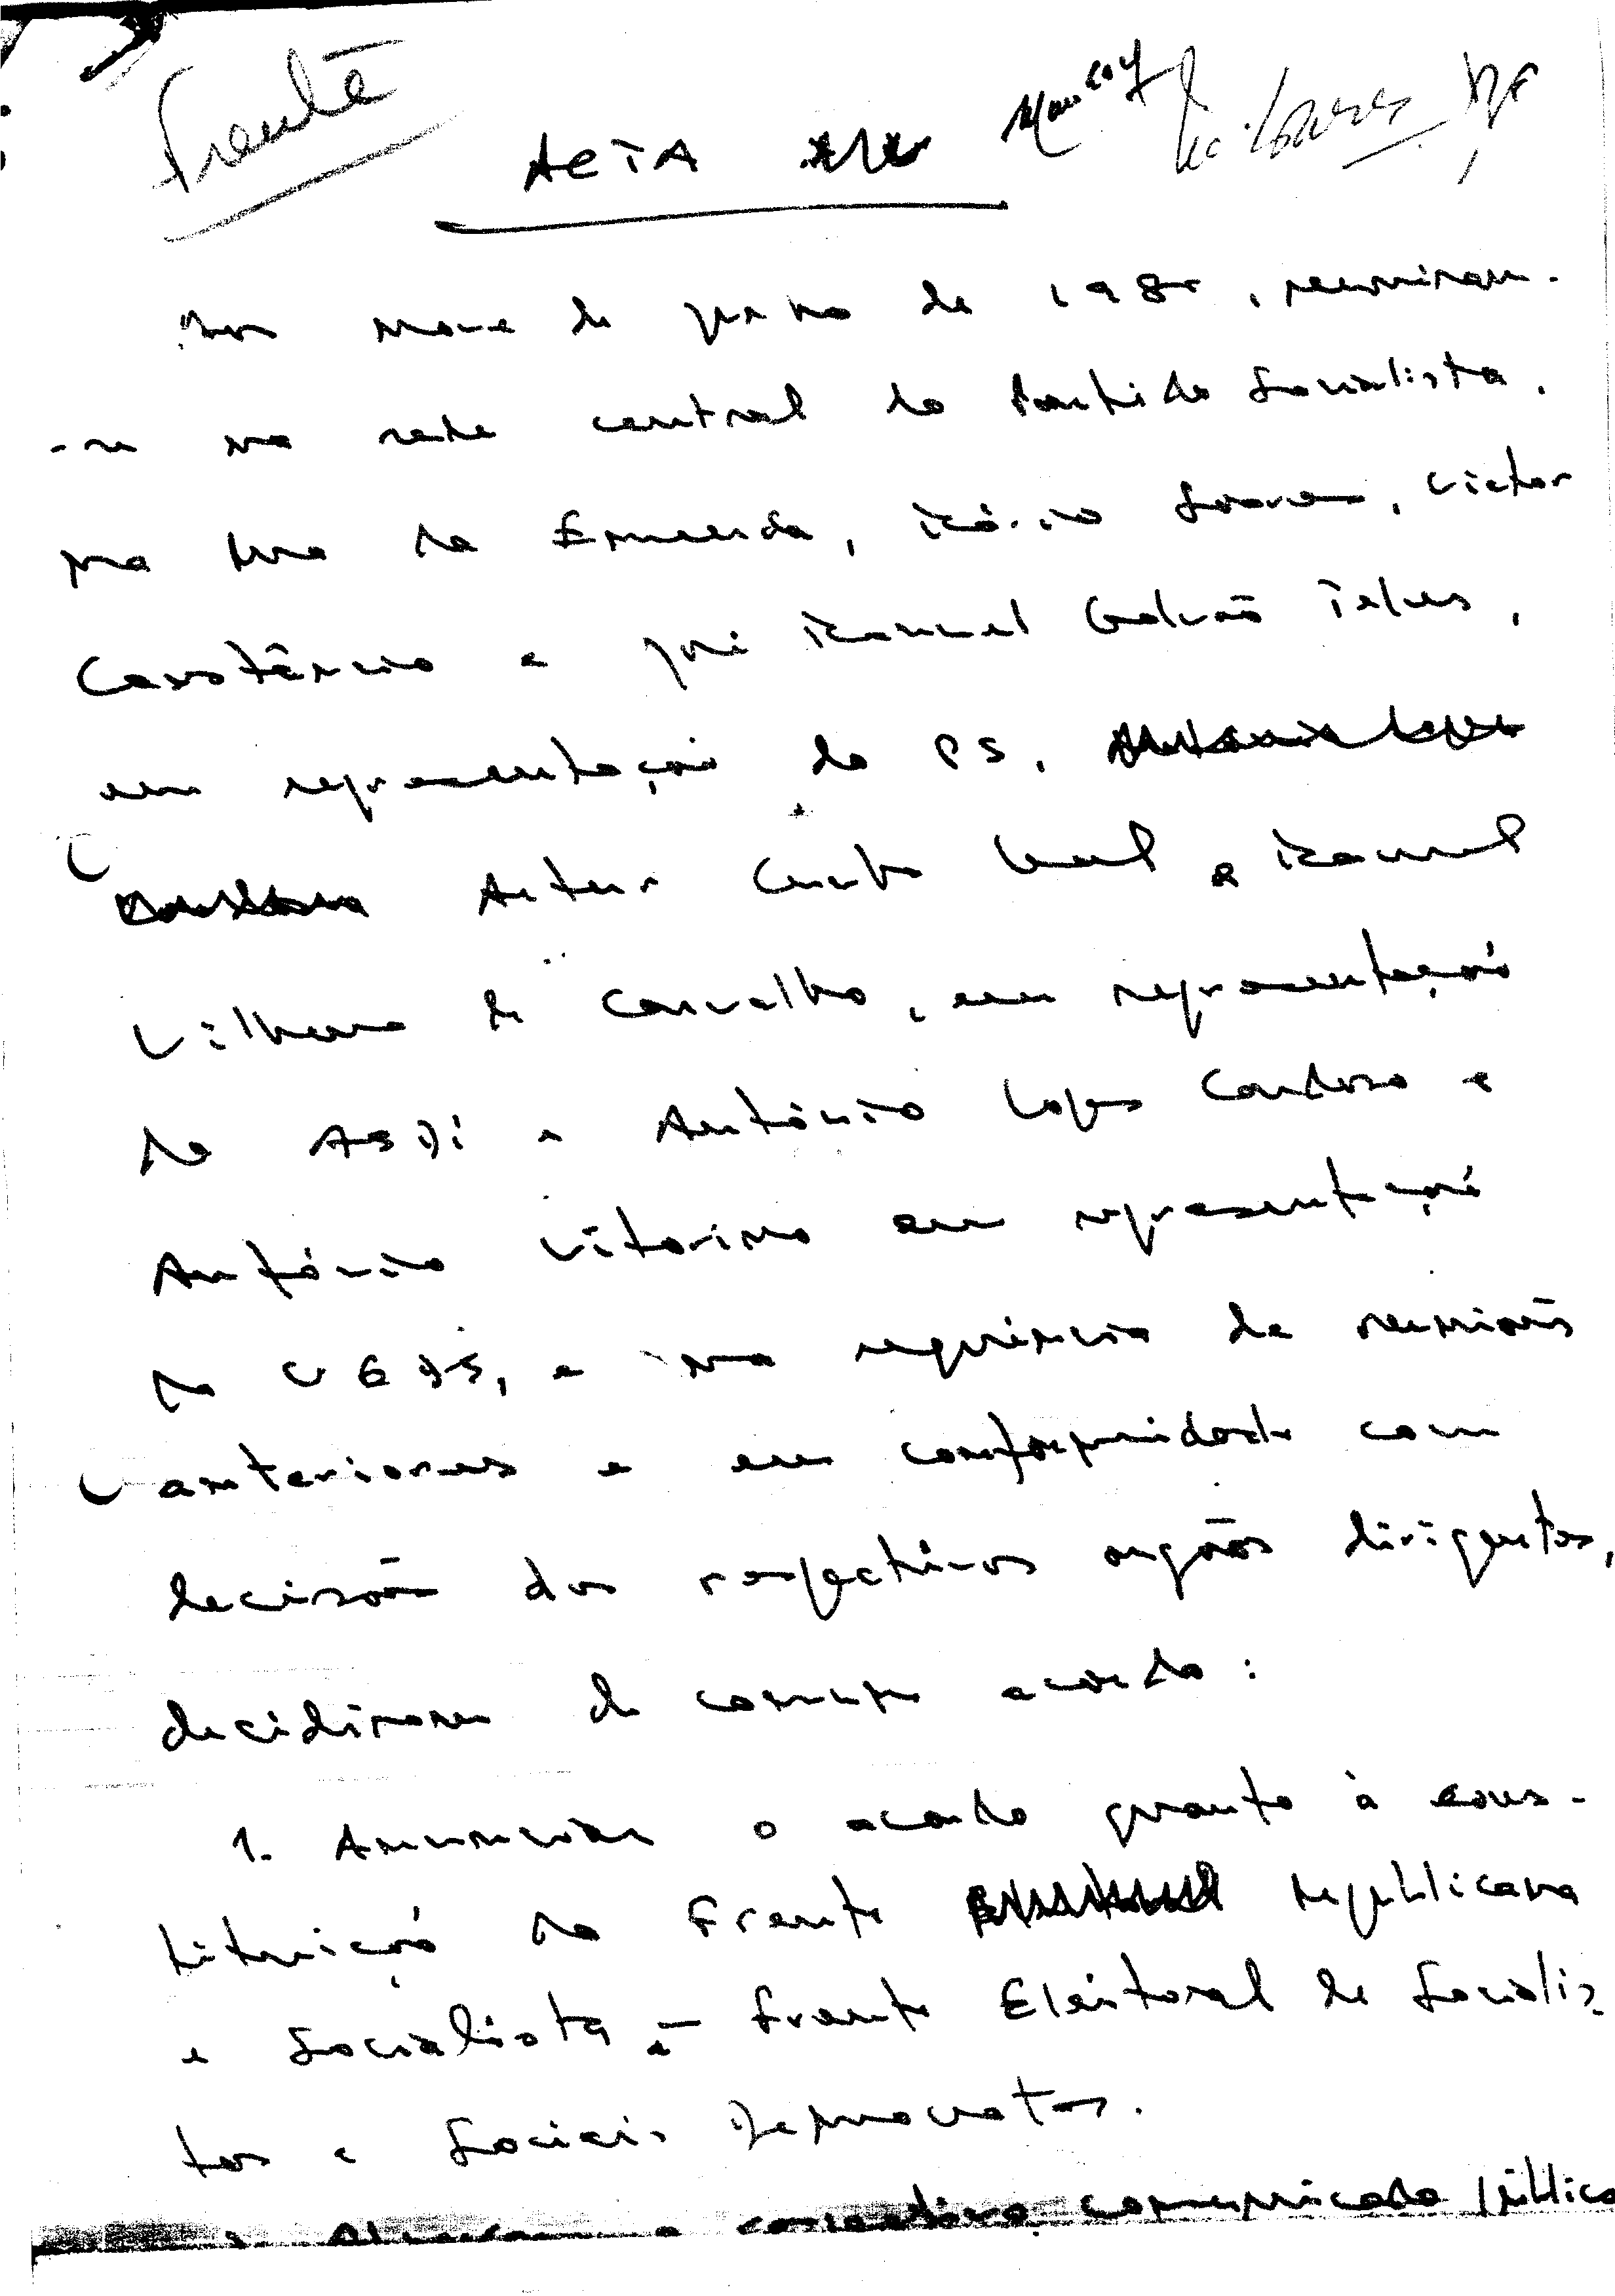 Frente
ACTA
M. Soares
Aos nove de junho de 1980, reuniram-
-se na sede central do Partido Socialista,
na Rua da Emenda, Mário Soares, Victor
Constâncio e José Manuel Galvão Teles,
em representação do PS, António Lopes
Cardoso Artur Cunha Leal e Manuel
Vilhena de Carvalho, em representação
da ASDI e António Lopes Cardoso e
António Vitorino em representação
da UEDS, e na sequência de reuniões
anteriores e em conformidade com
decisão dos respectivos orgãos dirigentes,
decidiram de comum acordo:
1. Anunciar o acordo quanto à cons-
tituição da Frente republicana
e Socialista - Frente Eleitoral de Socialis-
tas e Sociais Democratas.
o respectivo comunicado público